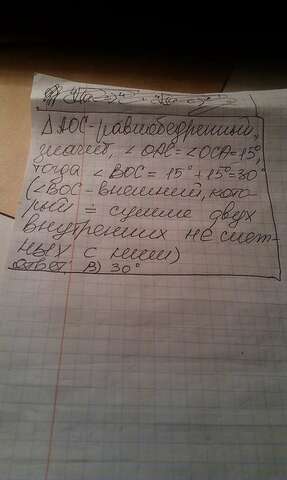 △АОС-равнобедренный,
значит, ∠ОАС=∠ОСА=15°,
тогда ∠ВОС = 15°+15°=30°
(∠ВОС-внешний, кото-
рый = сумме двух
внутренних не смеж-
ных с ним)
ответ В) 30°